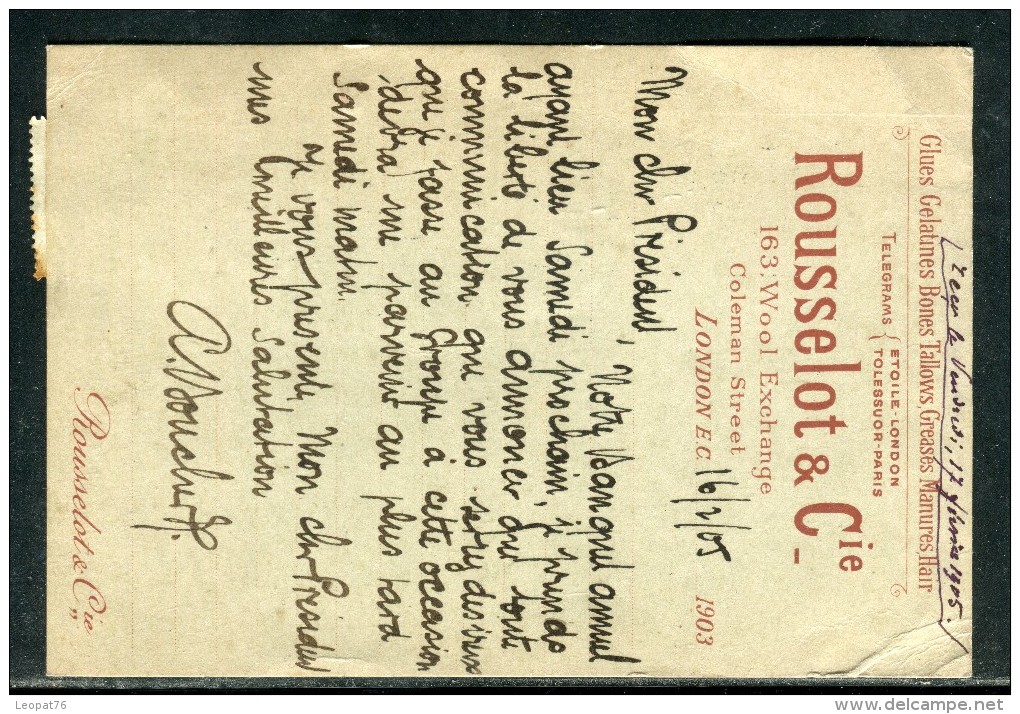 reçu le Vendredi, 17 février 1905.
Glues Gelatines Bones Tallows, Greases Manures, Hair
TELEGRAMS { ETOILE-LONDON
TOLESSUOR-PARIS
ROUSSELOT & Cie
163: Wool Exchange
Coleman Street
LONDON E.C. 16/2/05 1903
Mon cher Président,
Notre Banquet annuel
ayant lieu Samedi prochain, je prends
la liberté de vous annoncer que toute
communication que vous seriez désireux
que je fasse au Groupe à cette occasion
devra me parvenir au plus tard
Samedi matin.
Je vous présente, Mon cher Président
mes meilleures Salutations
Rousselot & Cie
Leopat76
delcampe.net